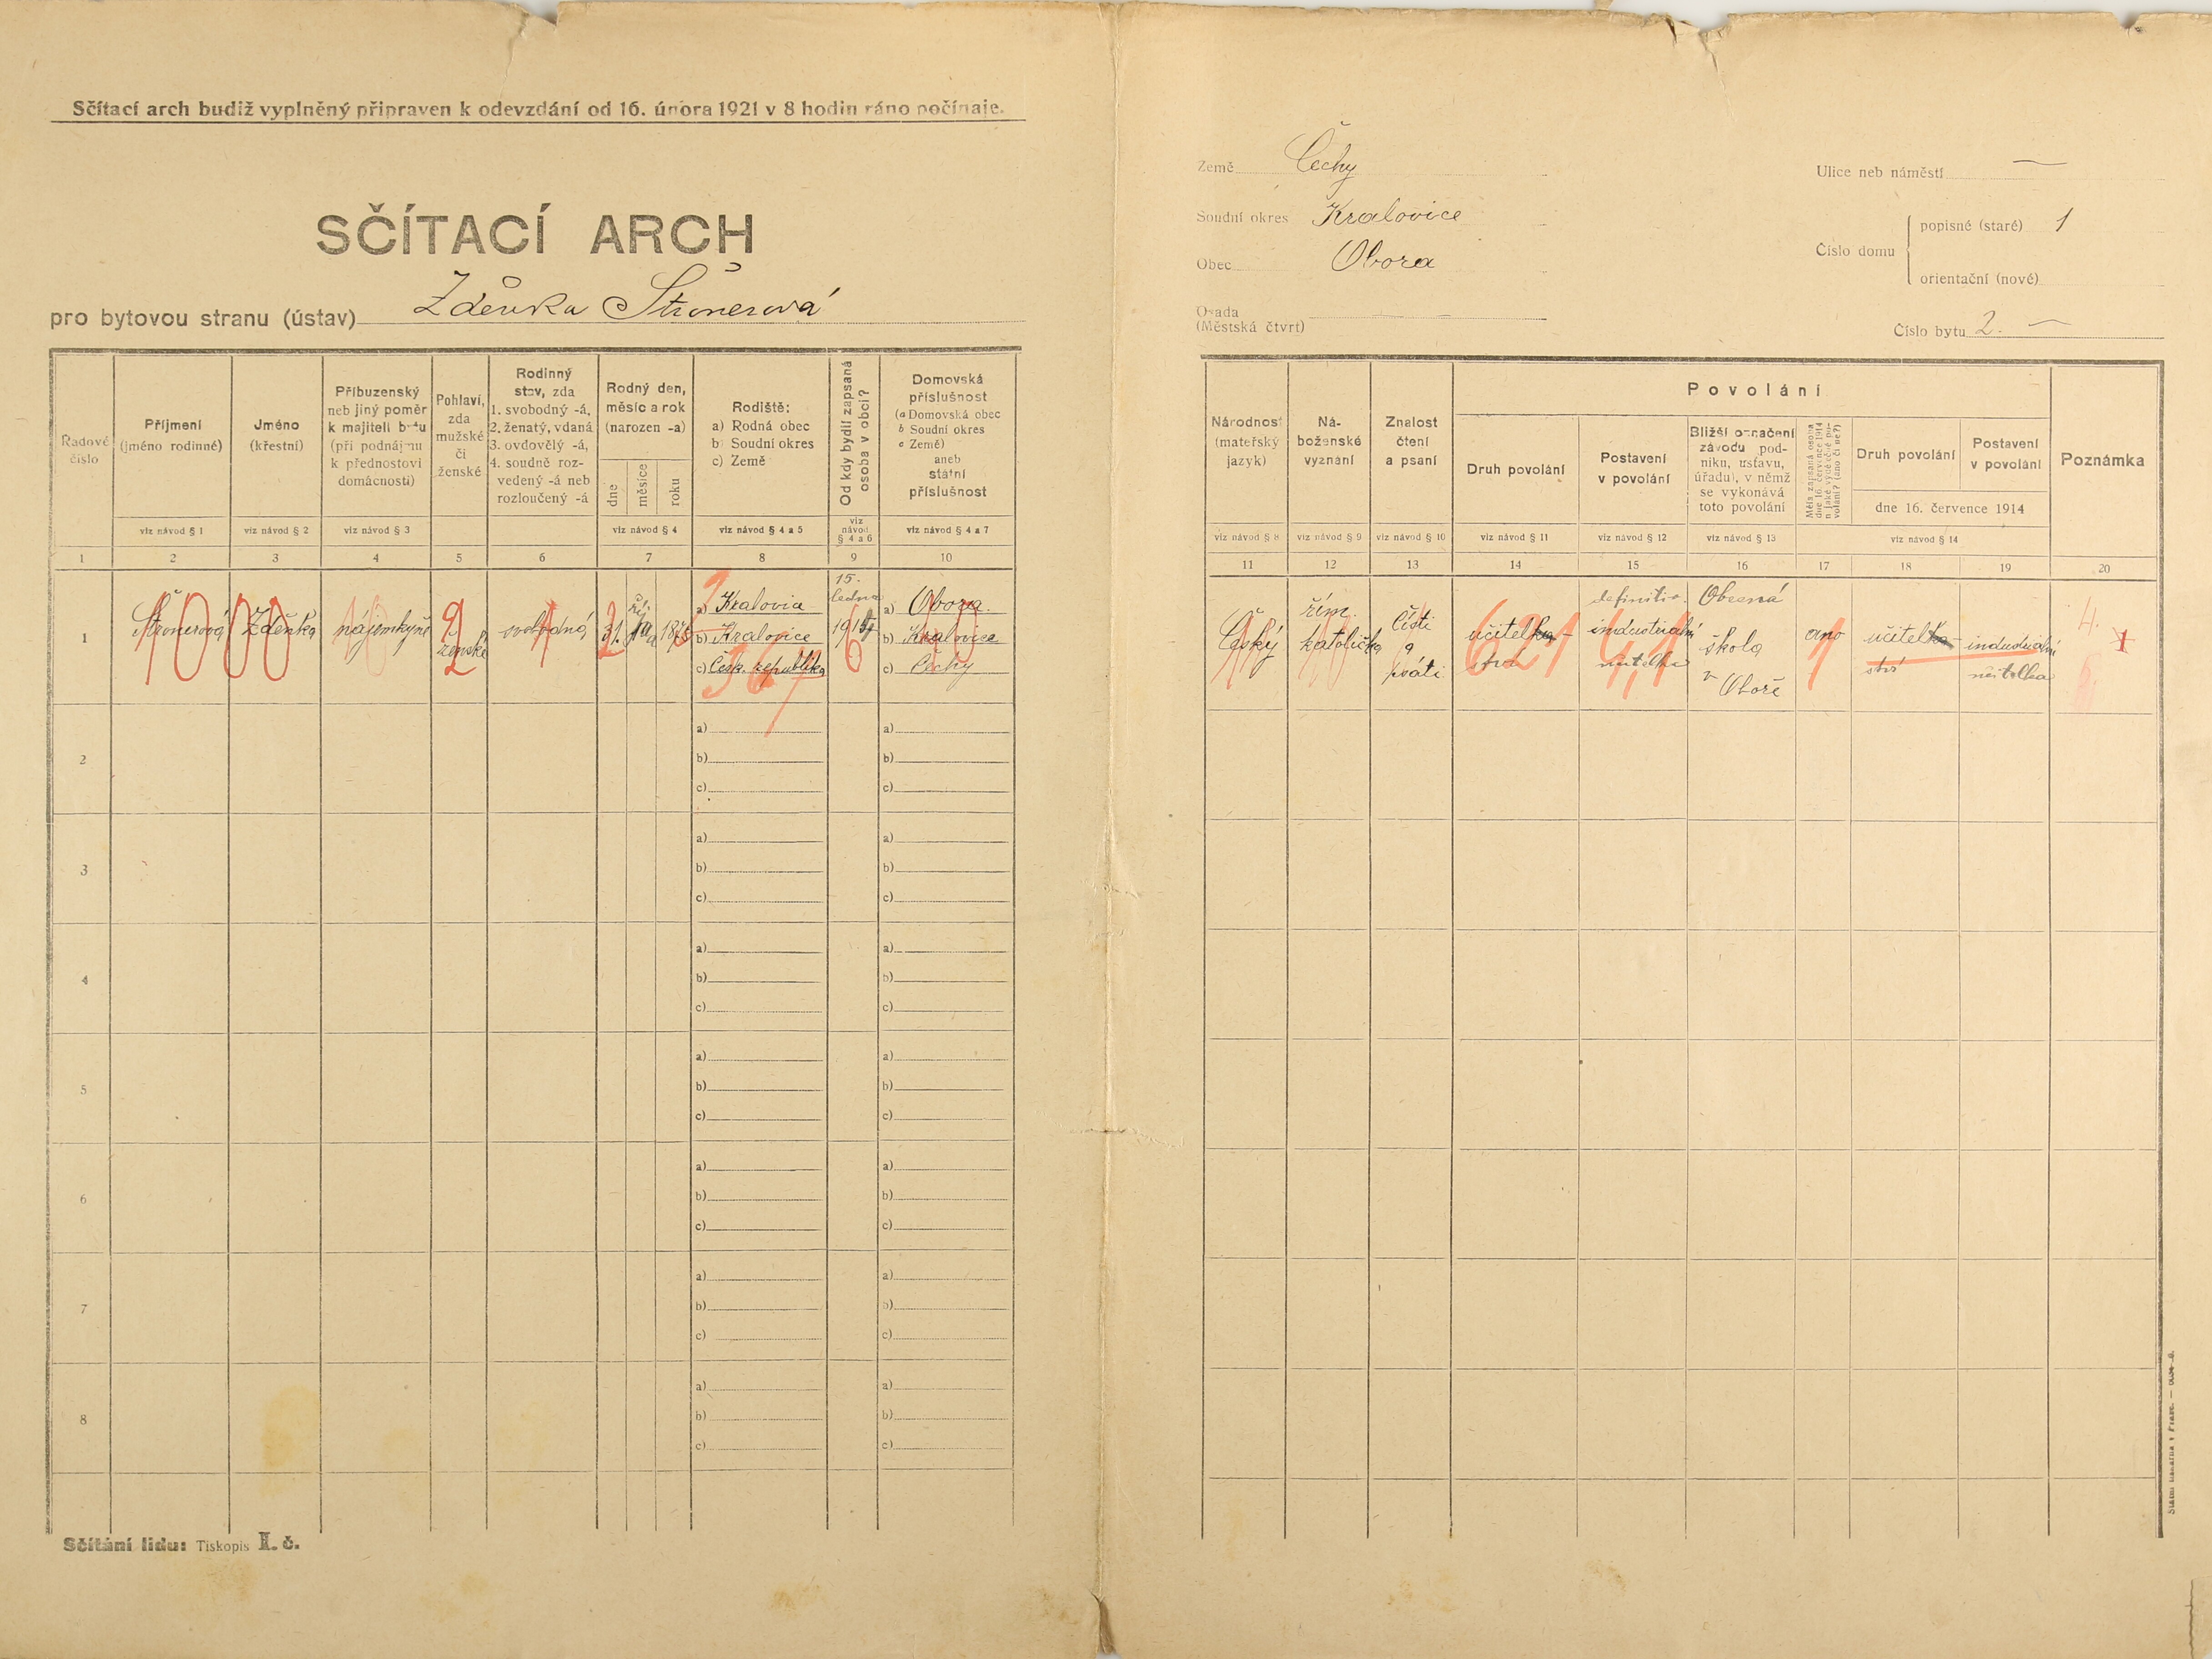 Sčítací arch budiž vyplněný připraven k odevzdání od 16. února 1921 v 8 hodin ráno počínaje.
SČÍTACÍ ARCH
pro bytovou stranu (ústav) Zdeňka Štronerová
Země Čechy
Soudní okres Kralovice
Obec Obora
Osada
(Městská čtvrt)
Ulice neb náměstí —
Číslo domu
popisné (staré) 1
orientační (nové)
Číslo bytu 2. —
Řadové
číslo
Příjmení
(jméno rodinné)
viz návod § 1
Jméno
(křestní)
viz návod § 2
Příbuzenský
neb jiný poměr
k majiteli bytu
(při podnájmu
k přednostovi
domácnosti)
viz návod § 3
Pohlaví,
zda
mužské
či
ženské
Rodinný
stav, zda
1. svobodný -á,
2. ženatý, vdaná
3. ovdovělý -á,
4. soudně roz-
vedený -á neb
rozloučený -á
Rodný den,
měsíc a rok
(narozen -a)
dne
měsíce
roku
viz návod § 4
Rodiště:
a) Rodná obec
b) Soudní okres
c) Země
viz návod § 4 a 5
Od kdy bydlí zapsaná
osoba v obci?
viz
návod
§ 4 a 6
Domovská
příslušnost
(a Domovská obec
b Soudní okres
c Země)
aneb
státní
příslušnost
viz návod § 4 a 7
1 2 3 4 5 6 7 8 9 10
1
Štronerová
Zdeňka
nájemkyně
ženské
svobodná
31.
a) Kralovice
b) Kralovice
c) Česk. republika
15.
ledna
a) Obora
b) Kralovice
c) Čechy
2
a)
b)
c)
a)
b)
c)
3
a)
b)
c)
a)
b)
c)
4
a)
b)
c)
a)
b)
c)
5
a)
b)
c)
a)
b)
c)
6
a)
b)
c)
a)
b)
c)
7
a)
b)
c)
a)
b)
c)
8
a)
b)
c)
a)
b)
c)
Sčítání lidu: Tiskopis II. č.
Národnost
(mateřský
jazyk)
viz návod § 8
Ná-
boženské
vyznání
viz návod § 9
Znalost
čtení
a psaní
viz návod § 10
Povolání
Druh povolání
viz návod § 11
Postavení
v povolání
viz návod § 12
Bližší označení
závodu (pod-
niku, ústavu,
úřadu), v němž
se vykonává
toto povolání
viz návod § 13
Měla zapsaná osoba
dne 16. července 1914
nějaké výdělečné po-
volání? (ano či ne?)
Druh povolání
Postavení
v povolání
dne 16. července 1914
viz návod § 14
Poznámka
11 12 13 14 15 16 17 18 19 20
Český
řím.
katolička
čísti
a
psáti
učitelka-
ství
621
definitiv.
industriální
učitelka
Obecná
škola
v
Oboře
ano
1
učitelka-
ství
industriální
učitelka